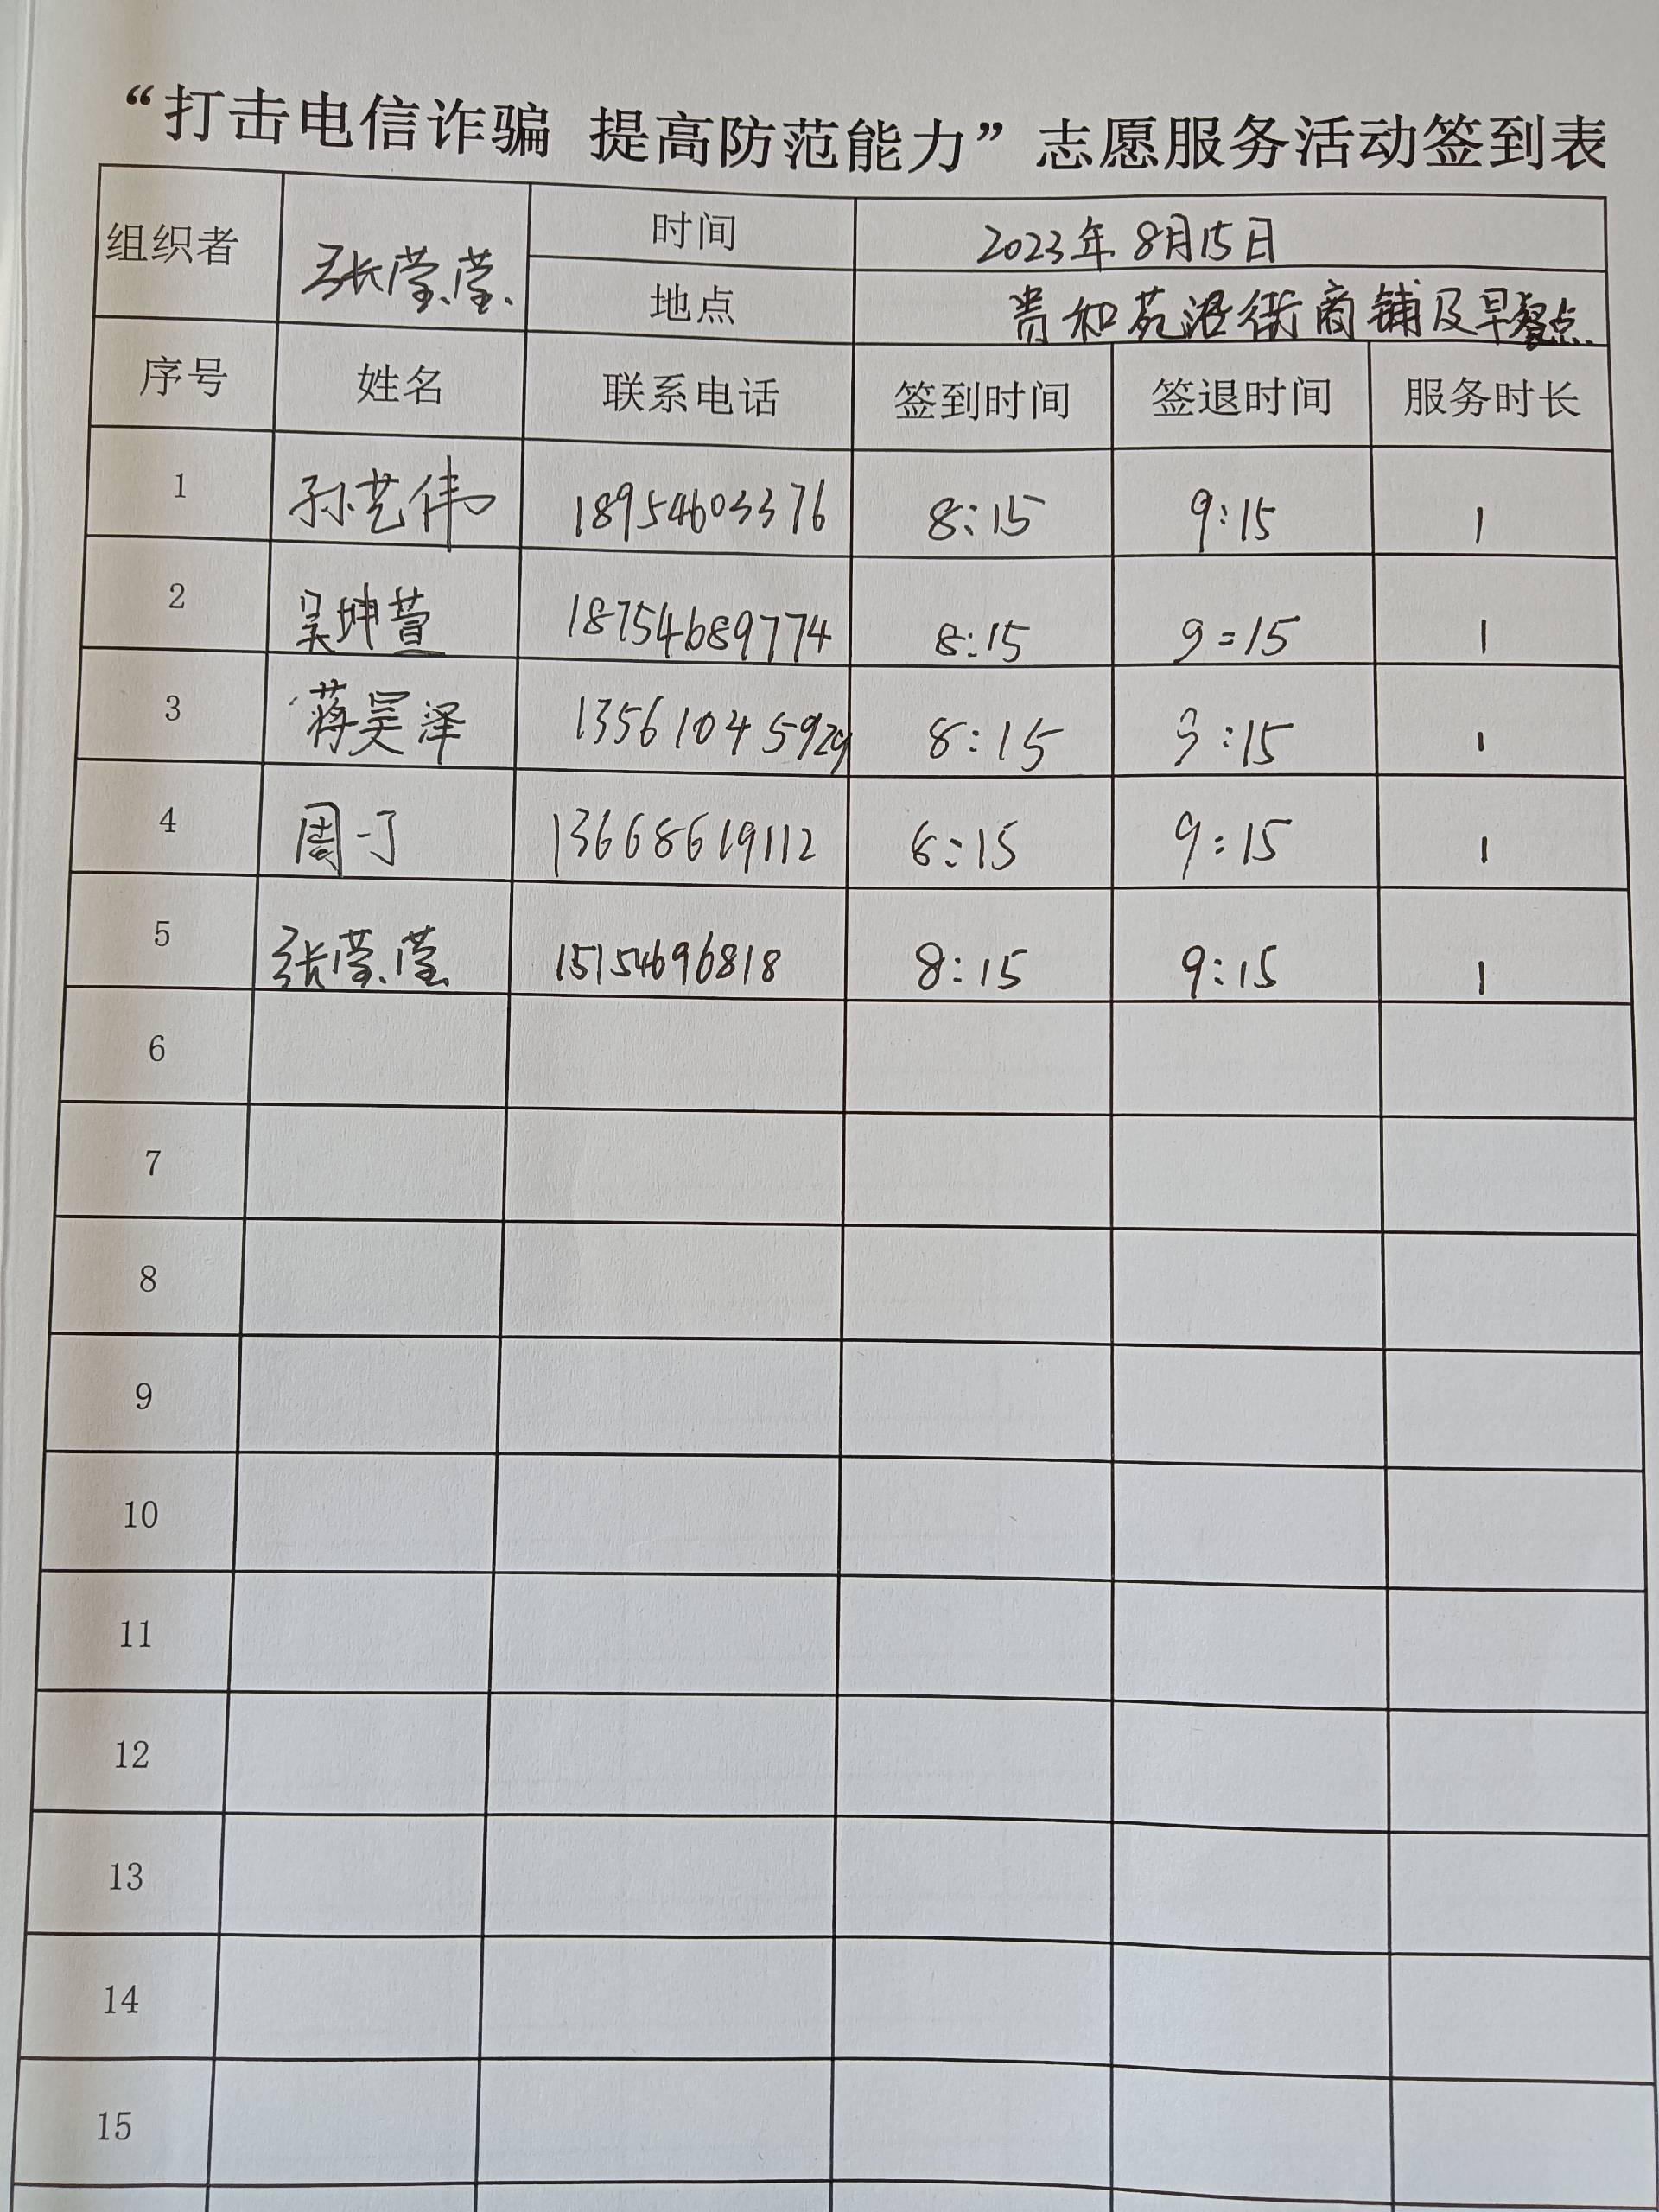 “打击电信诈骗 提高防范能力”志愿服务活动签到表
组织者 张莹莹 时间 2023年8月15日
地点 贵和苑沿街商铺及早餐点
序号 姓名 联系电话 签到时间 签退时间 服务时长
1 孙艺伟 18954603376 8:15 9:15 1
2 吴坤萱 18754689774 8:15 9:15 1
3 蒋昊泽 13561045929 8:15 9:15 1
4 周一丁 13668619112 8:15 9:15 1
5 张莹莹 15154696818 8:15 9:15 1
6
7
8
9
10
11
12
13
14
15